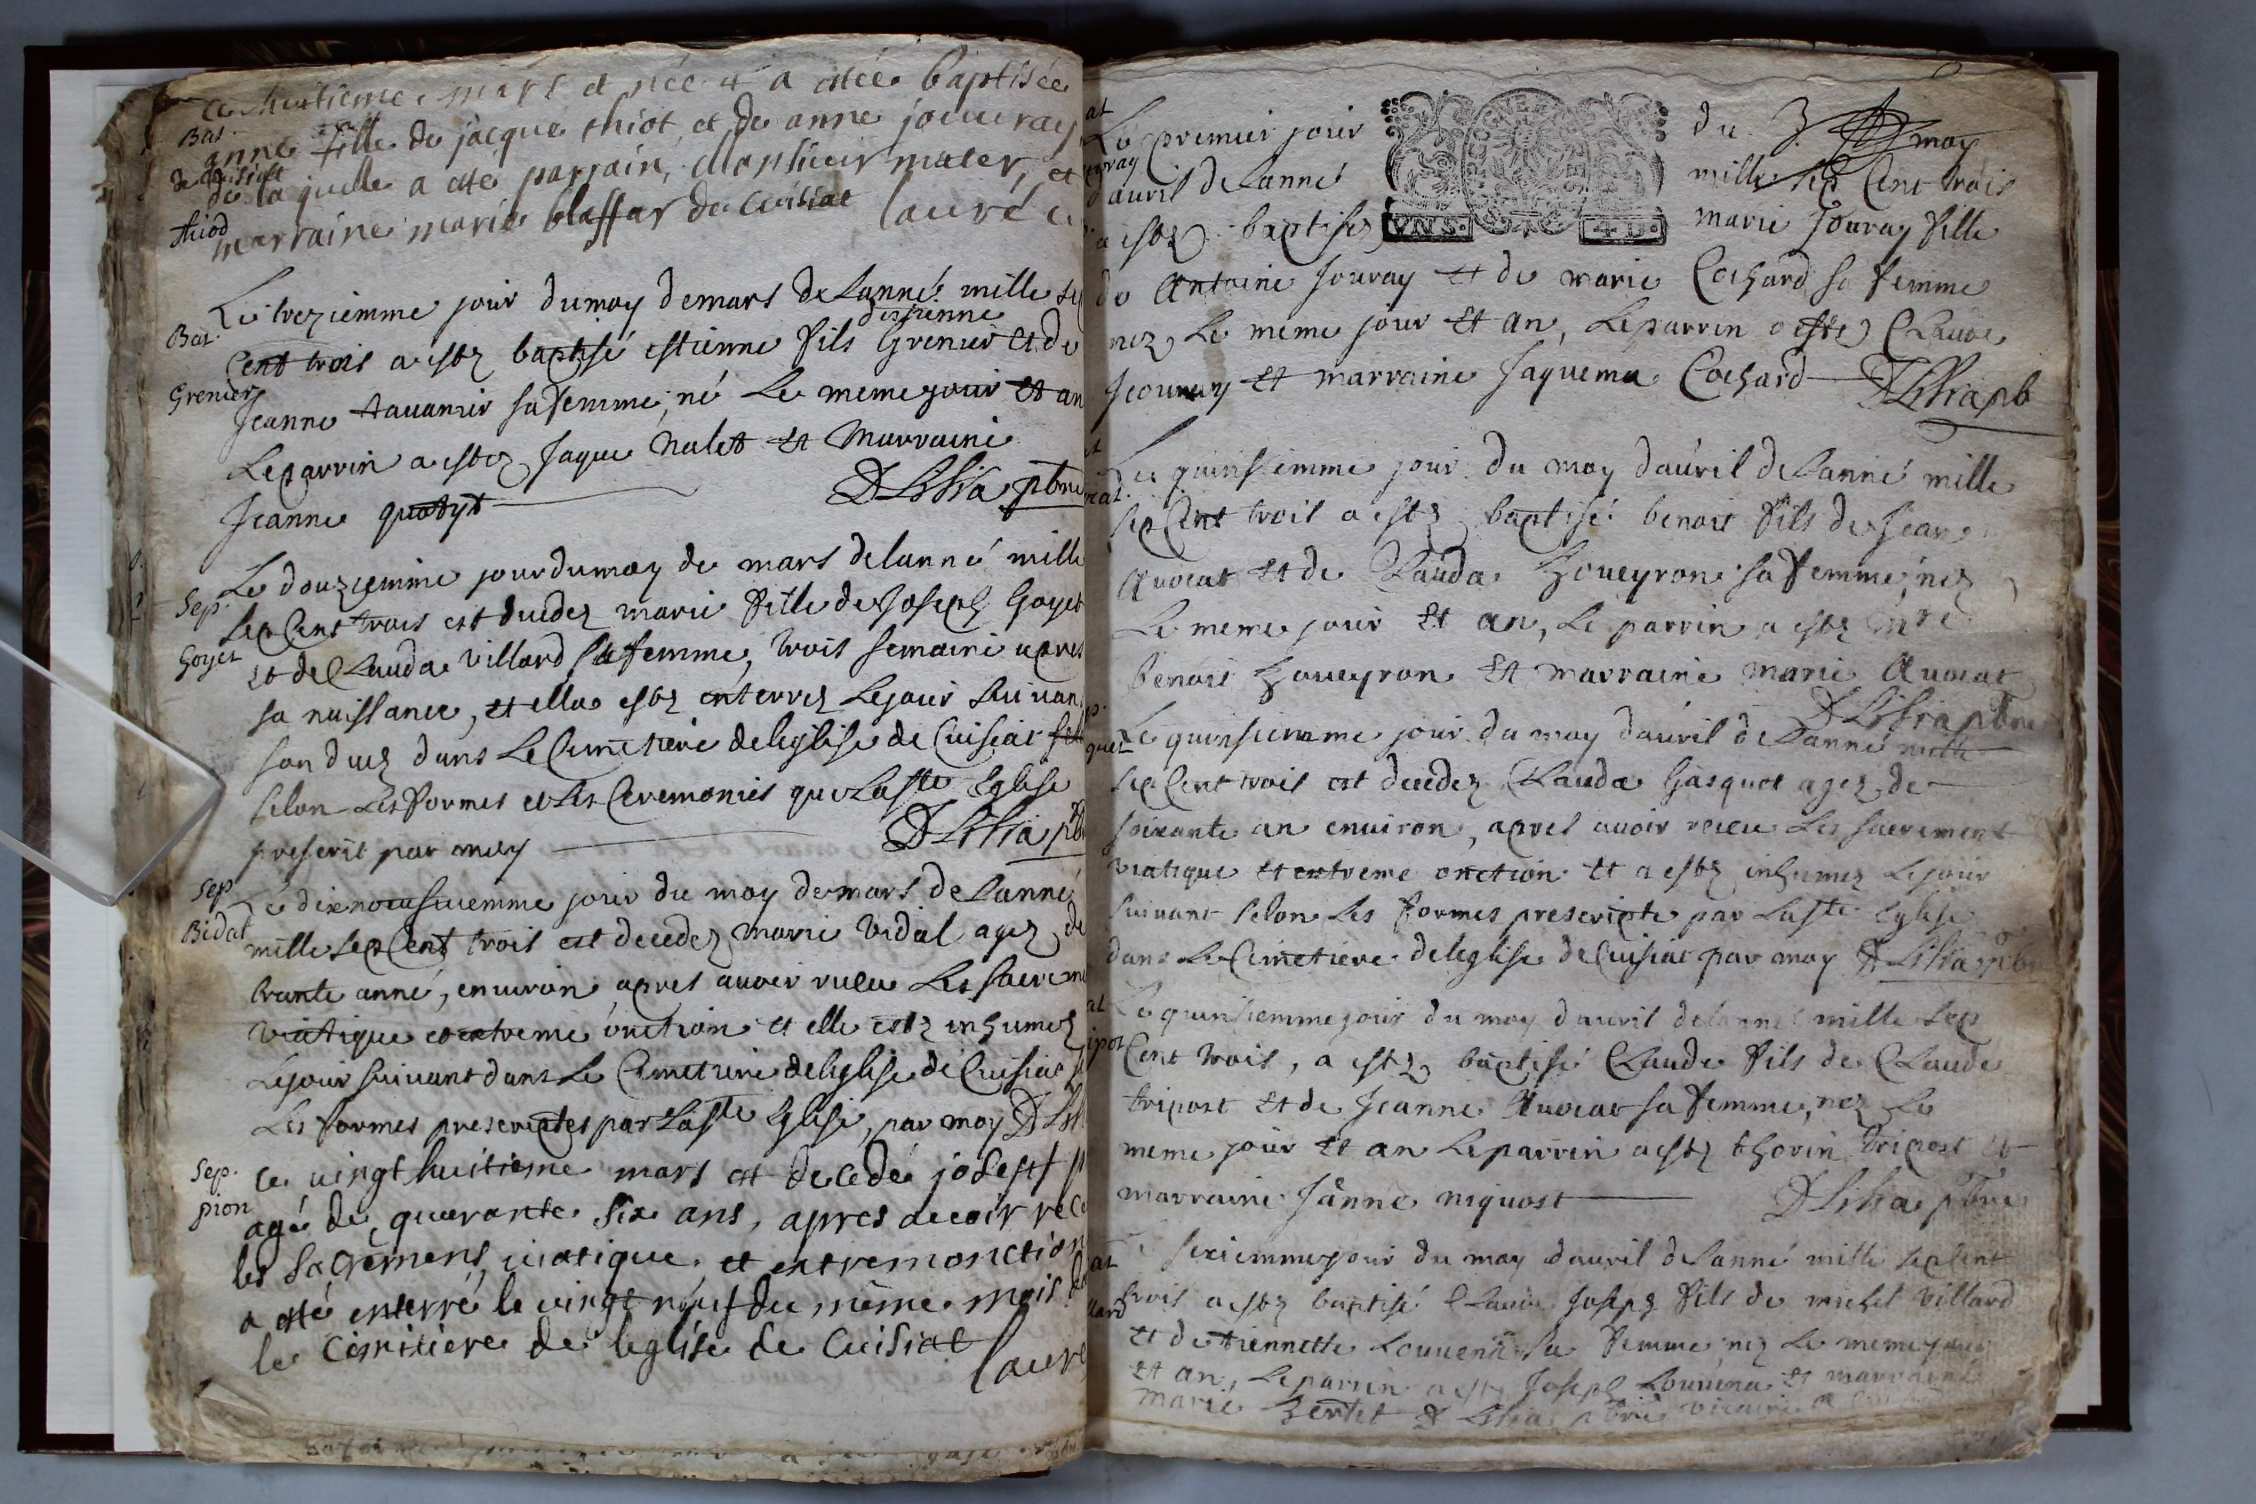 ce huitieme mars et née et a otée baptisée
Bat.
anne fille de jacque thiot et de anne jouuray
de Cuisiat
de laquelle a ote parrain, Monsieur mater, et
thiod
marraine marie blaffar de Cuisiat laure
Le treziemme jour du moy de mars de Lanné mille se
destienne
Bat.
Cent trois a estez baptisé estienne fils Grenier et de
Grenier
Jeanne tauanier sa femme, né Le meme jour et an
Le parrin a estez Jaque Nalet et Marraine
Jeanne D Lilia pbre
Le douziemme jour du moy de mars de lanné mille
Sep.
Sep Cent trois est decedez marie fille de Joseph Goyet
Goyet
et de Clauda villard sa femme, trois semaine apres
sa naissance, et ella estez enterrez Le jour suiuan
son decez dans Le Cimetiere de leglise de Cuisiat
selon Les formes et Les Ceremonies que La ste Eglise
prescrit par moy D Lilia pb
Sep
Le dixneufuiemme jour du moy de mars de Lanné
Bidat
mille Sep Cent trois est decedez marie vidal agez de
trante anné, enuiron apres auoir receu Les sacreme
viatique et extreme onction et elle estez inhumez
Le jour suiuant dans Le Cimetiere de leglise de Cuisiat
Les formes prescriptes par La ste Eglise, par moy D Lil
Sep.
ce uingt huitieme mars est decedé joseft p
pion
agé de quarante six ans, apres auoir rece
les sacremens, uiatique, et extremonction
a oté enterré le uingt néuf du même mois da
le Cimitiere de leglise de Cuisiat laure
at
Le premier jour du moy
uray
dauril de Lanné mille sep Cent trois
VNS. 4 D.
a estez baptisez marie Jouray fille
de Antoine Jouray et de marie Cochard sa femme
nez Le meme jour et an, Le parrin a estez Claude
Jeouray et marraine Jaquema Cochard D Lilia pb
at
Le quinsiemme jour du moy dauril de Lanné mille
cat.
Sep Cent trois a estez baptisé benois fils de Jean
Auocat et de Clauda Goueyron sa femme, nez
Le meme jour et an, Le parrin a estez mre
benois Goueyron et marraine marie Auocat
D Lilia pbre
p.
Le quinsiemme jour du moy dauril de Lanné mille
quet
Sep Cent trois est decedez Clauda Gasquet agez de
soixante an enuiron, apres auoir receu Les sacrement
viatique et extreme onction et a estez inhumez Le jour
suiuant selon Les formes prescripte par La ste Eglise
dans Le Cimetiere de leglise de Cuisiat par moy D Lilia pbr
at
Le quinsiemme jour du moy dauril de lanné mille Sep
ipot
Cent trois, a estez baptisé Claude fils de Claude
tripost et de Jeanne Auocat sa femme, nez Le
meme jour et an Le parrin a estez thorin tripost et
marraine Janne niquost D Lilia pbre
at
Le seziemme jour du moy dauril de Lanné mille sep Cent
llard
trois a estez baptisé Claude Joseph fils de michel villard
et de tiennette Louuena sa femme, nez Le meme jour
et an, Le parrin a estez Joseph Louuena et marraine
marie D Lilia pbre vicaire